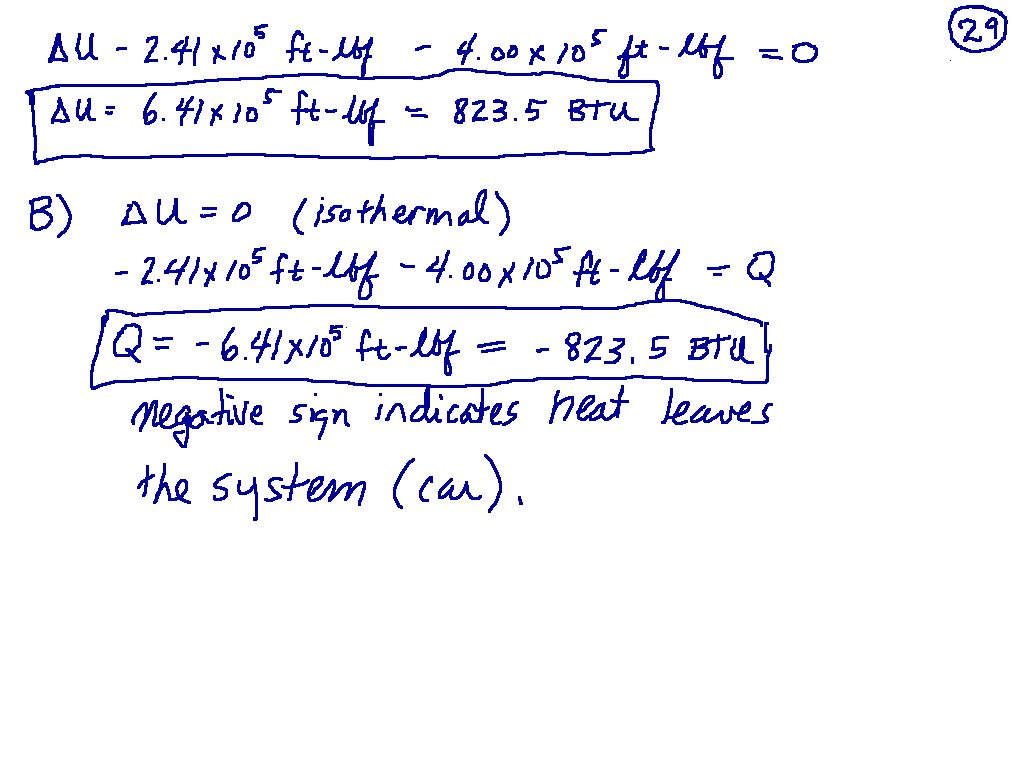 29
ΔU - 2.41 x 10⁵ ft-lbf - 4.00 x 10⁵ ft-lbf = 0
ΔU = 6.41 x 10⁵ ft-lbf = 823.5 BTU
B) ΔU = 0 (isothermal)
- 2.41 x 10⁵ ft-lbf - 4.00 x 10⁵ ft-lbf = Q
Q = - 6.41 x 10⁵ ft-lbf = - 823.5 BTU
negative sign indicates heat leaves
the system (car).